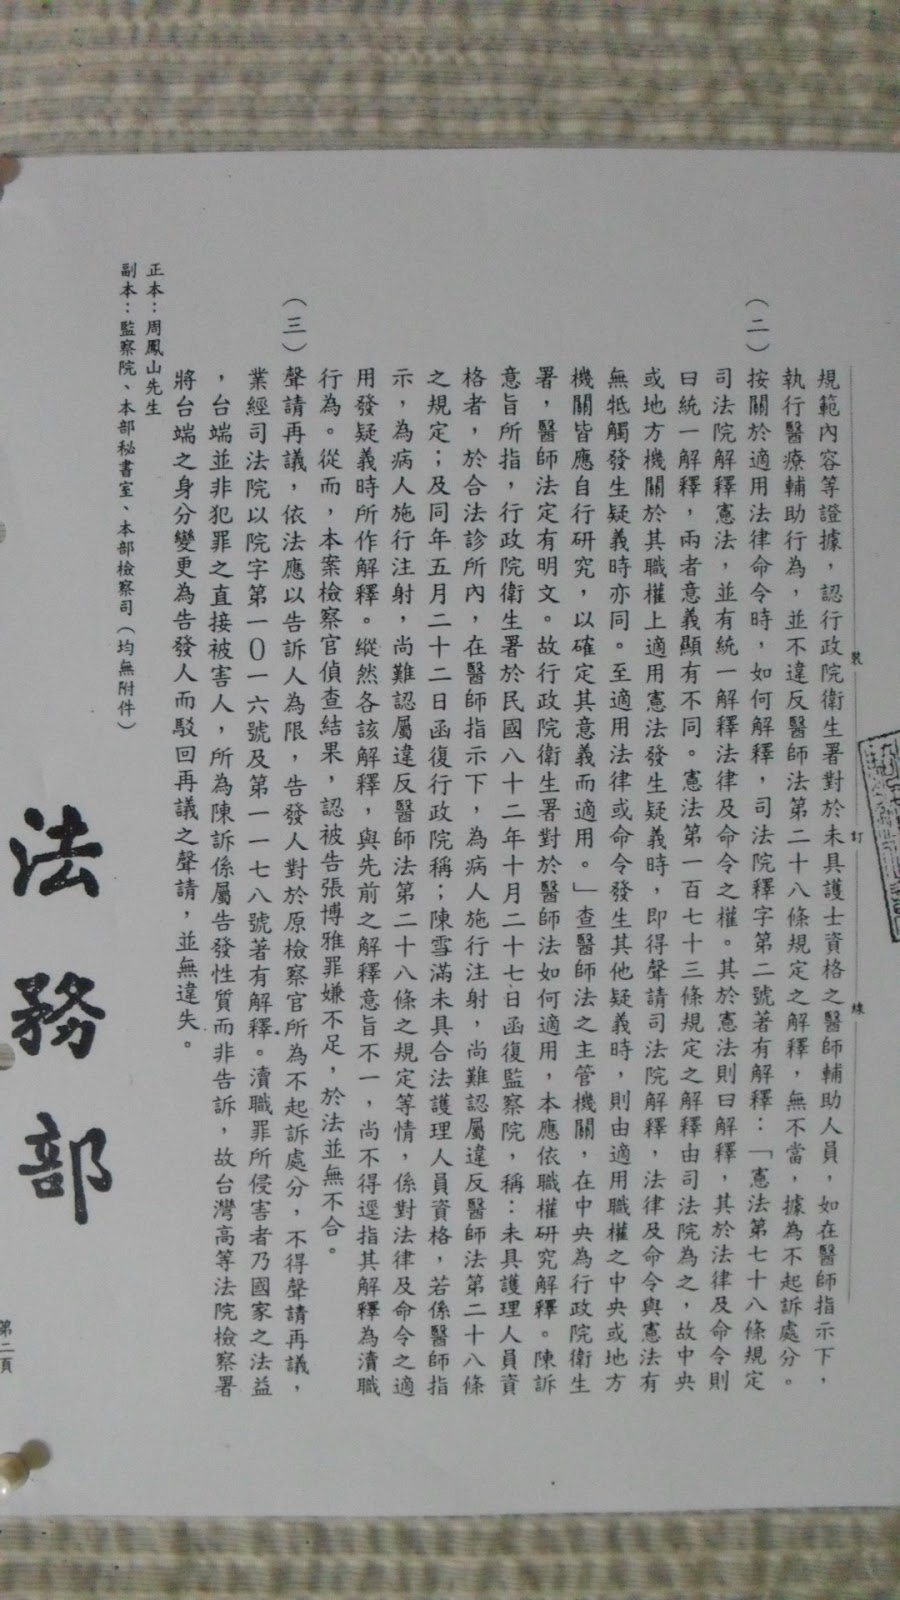 規範內容等證據，認行政院衛生署對於未具護士資格之醫師輔助人員，如在醫師指示下，
執行醫療輔助行為，並不違反醫師法第二十八條規定之解釋，無不當，據為不起訴處分。
（二）按關於適用法律命令時，如何解釋，司法院釋字第二號著有解釋：「憲法第七十八條規定
司法院解釋憲法，並有統一解釋法律及命令之權。其於憲法則曰解釋，其於法律及命令則
曰統一解釋，兩者意義顯有不同。憲法第一百七十三條規定之解釋由司法院為之，故中央
或地方機關於其職權上適用憲法發生疑義時，即得聲請司法院解釋，法律及命令與憲法有
無牴觸發生疑義時亦同。至適用法律或命令發生其他疑義時，則由適用職權之中央或地方
機關皆應自行研究，以確定其意義而適用。」查醫師法之主管機關，在中央為行政院衛生
署，醫師法定有明文。故行政院衛生署對於醫師法如何適用，本應依職權研究解釋。陳訴
意旨所指，行政院衛生署於民國八十二年十月二十七日函復監察院，稱：未具護理人員資
格者，於合法診所內，在醫師指示下，為病人施行注射，尚難認屬違反醫師法第二十八條
之規定；及同年五月二十二日函復行政院稱；陳雪滿未具合法護理人員資格，若係醫師指
示，為病人施行注射，尚難認屬違反醫師法第二十八條之規定等情，係對法律及命令之適
用發疑義時所作解釋。縱然各該解釋，與先前之解釋意旨不一，尚不得逕指其解釋為瀆職
行為。從而，本案檢察官偵查結果，認被告張博雅罪嫌不足，於法並無不合。
（三）聲請再議，依法應以告訴人為限，告發人對於原檢察官所為不起訴處分，不得聲請再議，
業經司法院以院字第一０一六號及第一一七八號著有解釋。瀆職罪所侵害者乃國家之法益
，台端並非犯罪之直接被害人，所為陳訴係屬告發性質而非告訴，故台灣高等法院檢察署
將台端之身分變更為告發人而駁回再議之聲請，並無違失。
正本：周鳳山先生
副本：監察院、本部秘書室、本部檢察司（均無附件）
法務部
第二頁
裝
訂
線